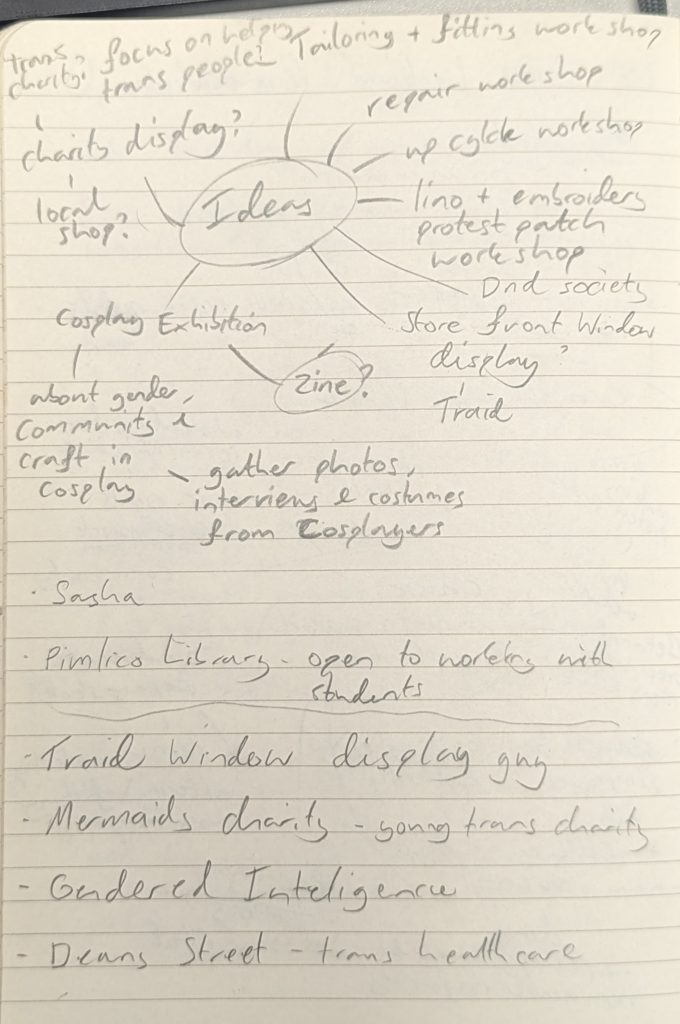 trans charity?
focus on helping trans people?
Tailoring + fitting workshop
repair workshop
charity display?
up cylcle workshop
local shop?
Ideas
lino + embroidery
protest patch
workshop
Dnd society
Cosplay Exhibition
Store front Window
display?
Zine?
Traid
about gender,
community &
craft in
cosplay
gather photos,
interviews & costumes
from Cosplayers
· Sasha
· Pimlico Library - open to working with
students
- Traid Window display guy
- Mermaids charity - young trans charity
- Gendered Inteligence
- Deans Street - trans healthcare